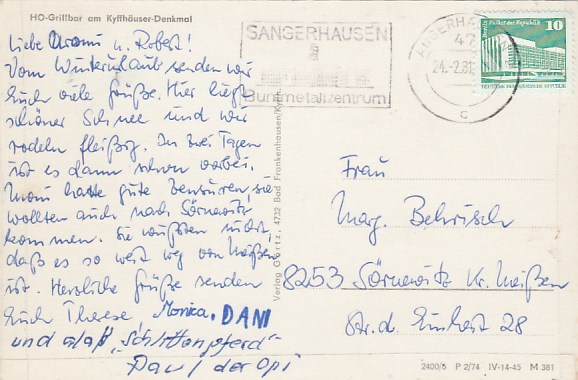 HO-Grillbar am Kyffhäuser-Denkmal
Liebe Omi u. Robert!
Vom Winterurlaub senden wir
Euch viele Grüße. Hier liegt
schöner Schnee und wir
rodeln fleißig. In zwei Tagen
ist es dann schon vorbei.
hatte gute Zensuren, sie
wollten auch nach Sörnewitz
kommen. Sie wußten nicht,
daß es so weit weg von Meißen
ist. Herzliche Grüße senden
Euch Theese Monica, DANI
und als "Schlittenpferd"
Paul der Opi
SANGERHAUSEN
Buntmetallzentrum
SANGERHAUSEN
47
24.-2.81
c
Berlin, Palast der Republik
10
DEUTSCHE DEMOKRATISCHE REPUBLIK
Verlag Goertz, 4732 Bad Frankenhausen/Kyffh.
Frau
Marg. Behrisch
8253 Sörnewitz Kr. Meißen
Str. d. Einheit 28
2400/5 P 2/74 IV-14-45 M 381